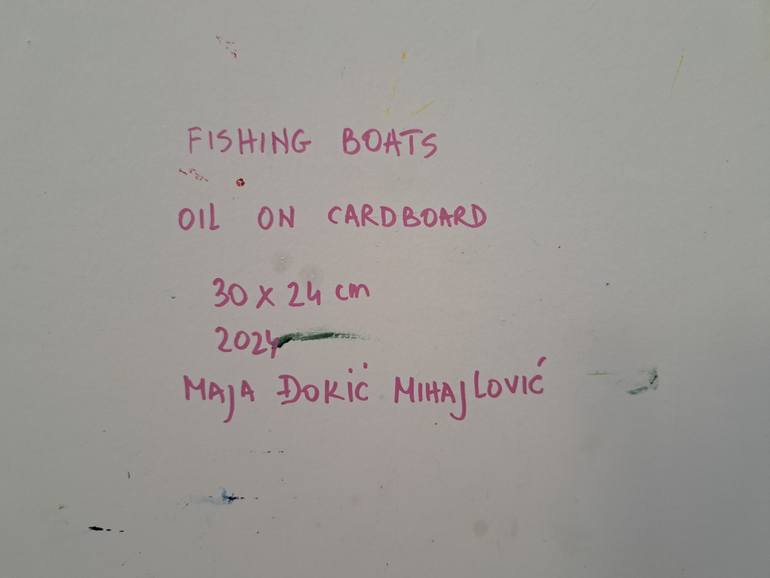 FISHING BOATS
OIL ON CARDBOARD
30 x 24 cm
2024
MAJA ĐOKIĆ MIHAJLOVIĆ